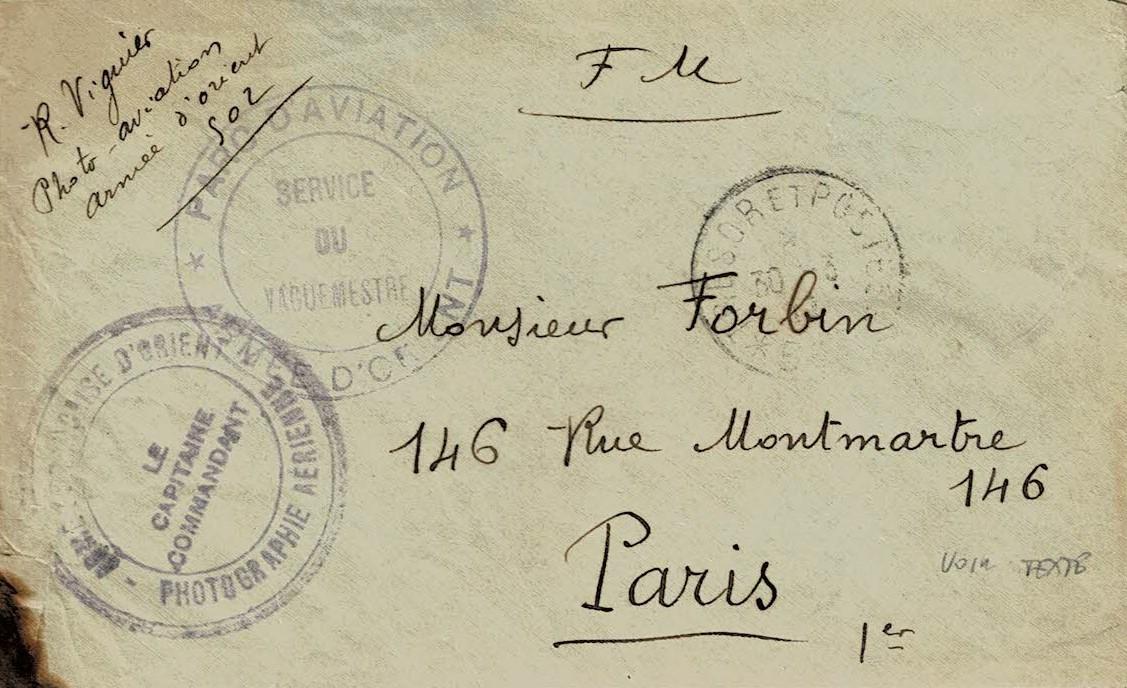 R. Viguier
Photo-aviation
armée d'orient
502
F M
PARC D'AVIATION
SERVICE
DU
VAGUEMESTRE
ARMÉE D'ORIENT
TRESOR ET POSTES
30
Monsieur Forbin
D'ORIENT
LE
CAPITAINE
COMMANDANT
PHOTOGRAPHIE AÉRIENNE
146 Rue Montmartre
146
Paris
1er
VOIR TEXTE